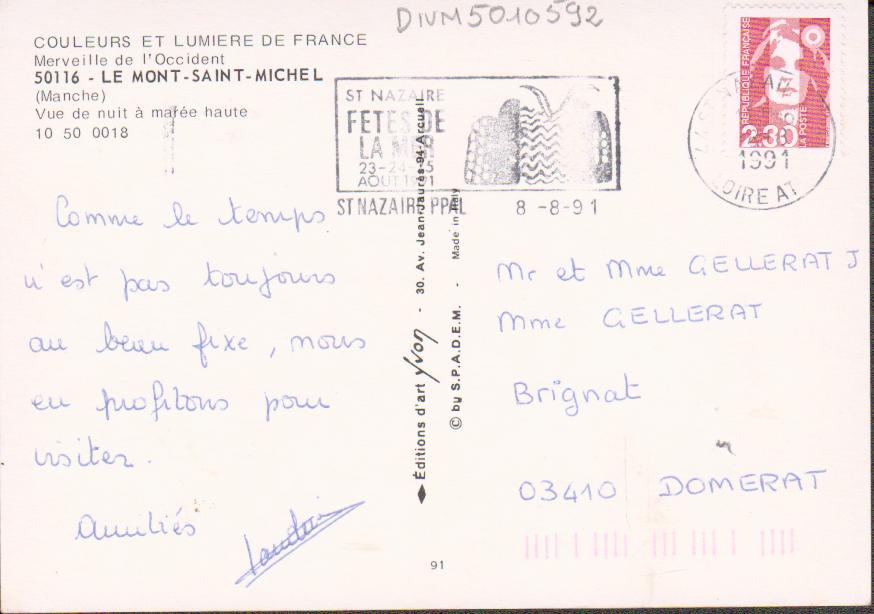 DIVM5010592
COULEURS ET LUMIERE DE FRANCE
Merveille de l'Occident
50116 - LE MONT-SAINT-MICHEL
(Manche)
Vue de nuit à marée haute
10 50 0018
ST NAZAIRE
FETES DE
LA MER
23-24-25
AOUT 1991
ST NAZAIRE PPAL 8 -8-91
REPUBLIQUE FRANÇAISE
2.30
LA POSTE
1991
LOIRE AT
Comme le temps
n'est pas toujours
au beau fixe, nous
en profitons pour
visiter.
Amitiés
◆ Éditions d'art yvon - 30. Av. Jean-Jaurès-94-Arcueil
© by S.P.A.D.E.M. - Made in Italy
91
Mr et Mme GELLERAT J
Mme GELLERAT
Brignat
03410 DOMERAT